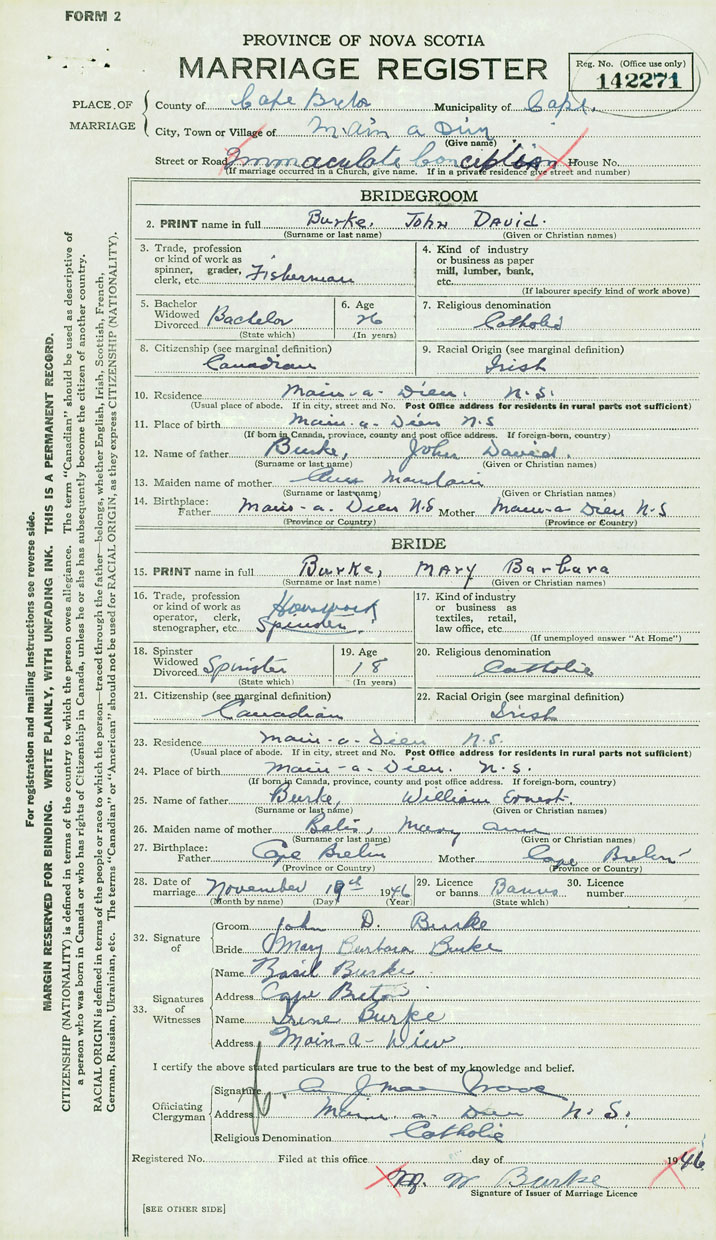 FORM 2
PROVINCE OF NOVA SCOTIA
MARRIAGE REGISTER
Reg. No. (Office use only)
142271
PLACE OF MARRIAGE
County of Cape Breton Municipality of Cape.
City, Town or Village of Main a Dieu
(Give name)
Street or Road Immaculate Conception House No.
(If marriage occurred in a Church, give name. If in a private residence give street and number)
BRIDEGROOM
2. PRINT name in full Burke, John David.
(Surname or last name) (Given or Christian names)
3. Trade, profession or kind of work as spinner, grader, clerk, etc. Fisherman
4. Kind of industry or business as paper mill, lumber, bank, etc.
(If labourer specify kind of work above)
5. Bachelor Widowed Divorced Bachelor
(State which)
6. Age 26
(In years)
7. Religious denomination
Catholic
8. Citizenship (see marginal definition)
Canadian
9. Racial Origin (see marginal definition)
Irish
10. Residence Main-a-Dieu. N.S.
(Usual place of abode. If in city, street and No. Post Office address for residents in rural parts not sufficient)
11. Place of birth Main-a-Dieu N.S
(If born in Canada, province, county and post office address. If foreign-born, country)
12. Name of father Burke, John David.
(Surname or last name) (Given or Christian names)
13. Maiden name of mother
(Surname or last name) (Given or Christian names)
14. Birthplace: Father Main-a-Dieu N.S Mother Main-a Dieu N-S
(Province or Country) (Province or Country)
BRIDE
15. PRINT name in full Burke, Mary Barbara
(Surname or last name) (Given or Christian names)
16. Trade, profession or kind of work as operator, clerk, stenographer, etc. Housework Spinster.
17. Kind of industry or business as textiles, retail, law office, etc.
(If unemployed answer "At Home")
18. Spinster Widowed Divorced Spinster
(State which)
19. Age 18
(In years)
20. Religious denomination
Catholic
21. Citizenship (see marginal definition)
Canadian
22. Racial Origin (see marginal definition)
Irish
23. Residence Main-a-Dieu N.S.
(Usual place of abode. If in city, street and No. Post Office address for residents in rural parts not sufficient)
24. Place of birth Main-a-Dieu. N.S.
(If born in Canada, province, county and post office address. If foreign-born, country)
25. Name of father Burke, William Ernest.
(Surname or last name) (Given or Christian names)
26. Maiden name of mother Mary Ann
(Surname or last name) (Given or Christian names)
27. Birthplace: Father Cape Breton Mother Cape Breton
(Province or Country) (Province or Country)
28. Date of marriage November 19th 1946
(Month by name) (Day) (Year)
29. Licence or banns Banns
(State which)
30. Licence number
32. Signature of
Groom John D. Burke
Bride Mary Barbara Burke
33. Signatures of Witnesses
Name Basil Burke
Address Cape Breton
Name Irene Burke
Address Main-a-Dieu
I certify the above stated particulars are true to the best of my knowledge and belief.
Officiating Clergyman
Signature
Address Main a Dieu N.S.
Religious Denomination Catholic
Registered No. Filed at this office day of 1946
M. W Burke
Signature of Issuer of Marriage Licence
[SEE OTHER SIDE]
For registration and mailing instructions see reverse side.
MARGIN RESERVED FOR BINDING. WRITE PLAINLY, WITH UNFADING INK. THIS IS A PERMANENT RECORD.
CITIZENSHIP (NATIONALITY) is defined in terms of the country to which the person owes allegiance. The term "Canadian" should be used as descriptive of
a person who was born in Canada or who has rights of Citizenship in Canada, unless he or she has subsequently become the citizen of another country.
RACIAL ORIGIN is defined in terms of the people or race to which the person—traced through the father—belongs, whether English, Irish, Scottish, French,
German, Russian, Ukrainian, etc. The terms "Canadian" or "American" should not be used for RACIAL ORIGIN, as they express CITIZENSHIP (NATIONALITY).